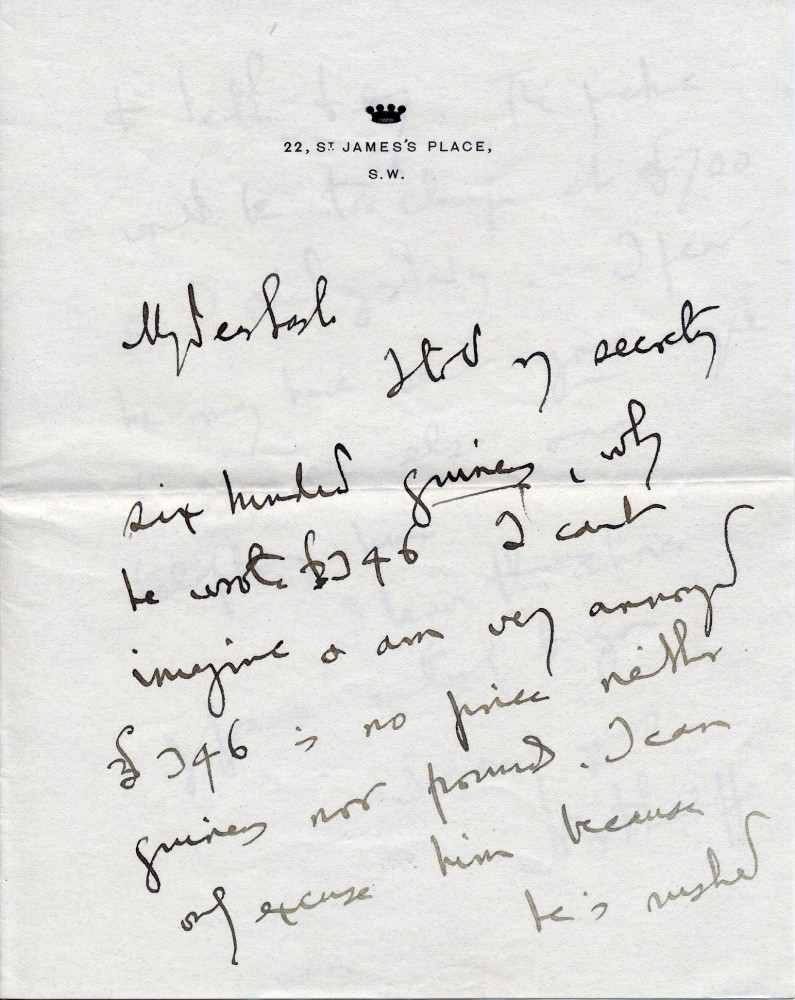 22, ST JAMES'S PLACE,
S.W.
My dear
I told my secretary
six hundred guineas, why
he wrote £346 I can't
imagine & am very annoyed
£346 is no price neither
guineas nor pounds. I can
only excuse him because
he is rushed